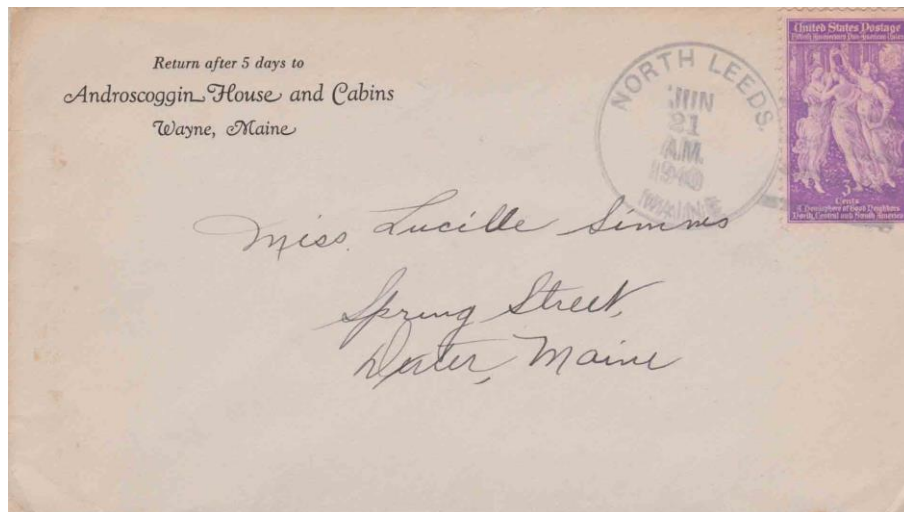 Return after 5 days to
Androscoggin House and Cabins
Wayne, Maine
NORTH LEEDS.
JUN
21
A.M.
1940
MAINE
United States Postage
3
Cents
A Hemisphere of Good Neighbors
North, Central and South America
Miss. Lucille Simms
Spring Street,
Dexter, Maine